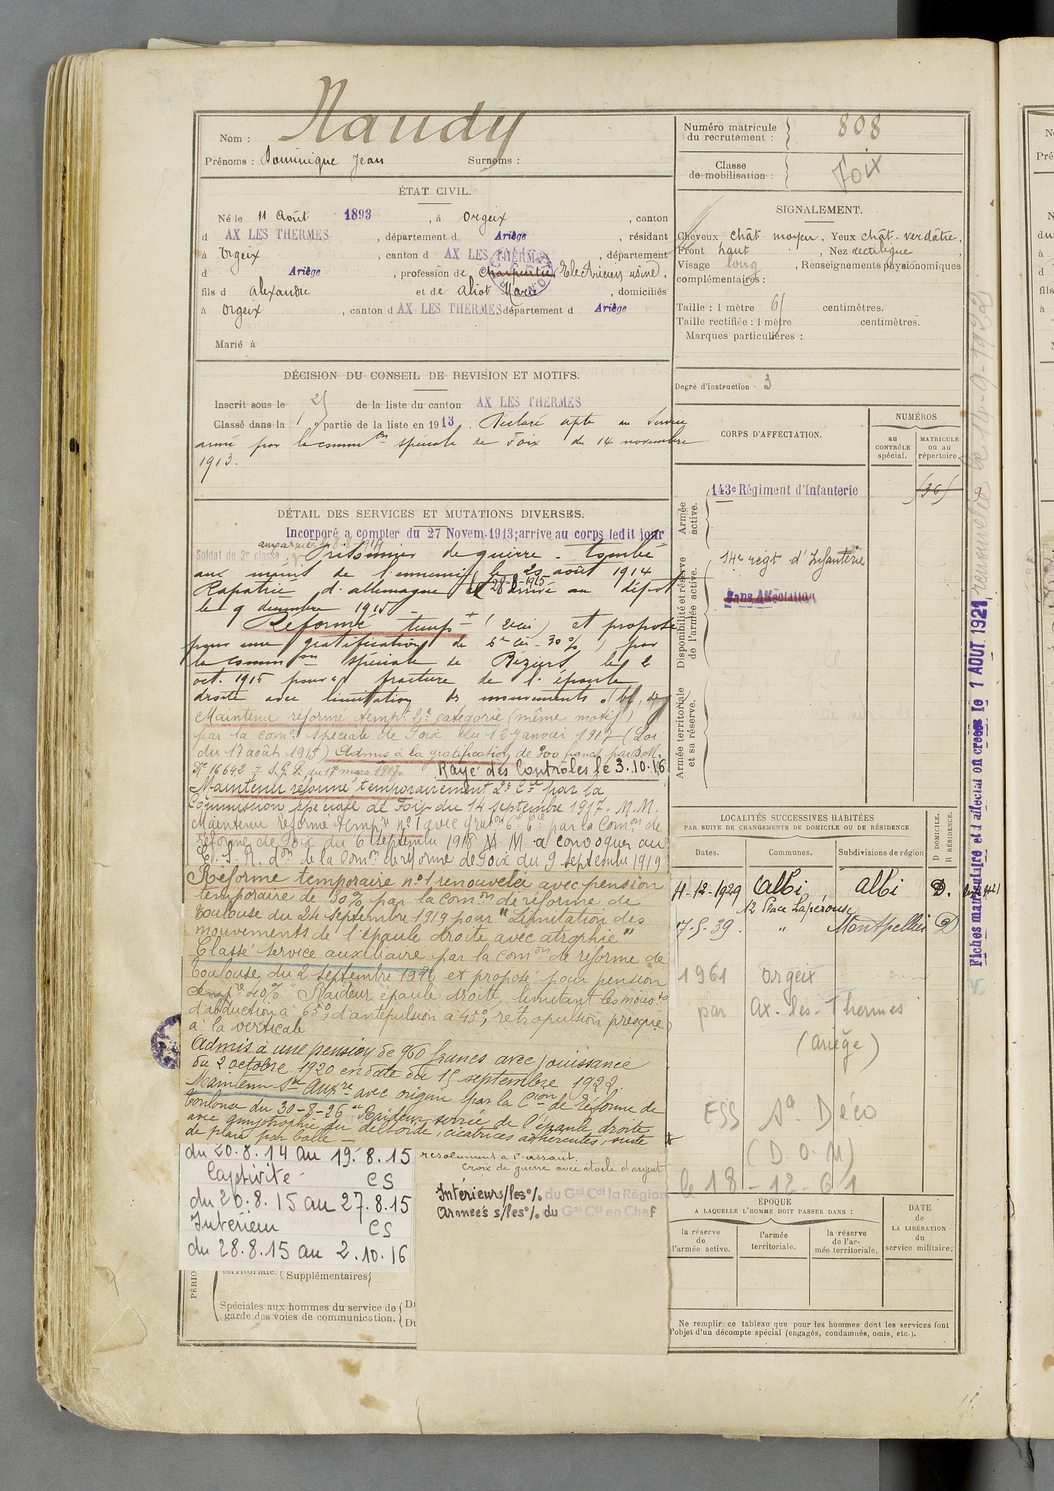 Nom : Naudy
Prénoms : Dominique Jean Surnoms :
ÉTAT CIVIL.
Né le 11 Août 1893, à Orgeix, canton
d AX LES THERMES, département d Ariège, résidant
à Orgeix, canton d AX LES THERMES, département
d Ariège, profession de Charpentier
fils d Alexandre et de Aliot Marie, domiciliés
à Orgeix, canton d AX LES THERMES département d Ariège
Marié à
DÉCISION DU CONSEIL DE REVISION ET MOTIFS.
Inscrit sous le 25 de la liste du canton AX LES THERMES
Classé dans la 1 partie de la liste en 1913. Déclaré apte au Service
armé par la comm on spéciale de Foix du 14 novembre
1913.
DÉTAIL DES SERVICES ET MUTATIONS DIVERSES.
Incorporé a compter du 27 Novem. 1913; arrive au corps ledit jour
Soldat de 2e classe. Prisonnier de guerre. Tombé
aux mains de l'ennemi le 20 août 1914
Rapatrié d'allemagne le 28-8-1915 Arrivé au dépôt
le 9 décembre 1915
Réformé temp re et proposé
pour une gratification de 30 % par
la comm on spéciale de Béziers le 2
oct. 1915 pour fracture de l'épaule
droite avec limitation des mouvements
Maintenu réformé temp re 2e catégorie (même motif)
par la com on spéciale de Foix du 12 janvier 1917 (Loi
du 17 août 1915) Admis à la gratification de 300 francs par D.M.
No 16642 du 17 mars 1917. Rayé des Contrôles le 3.10.16
Maintenu réformé temporairement 2e Cie par la
Commission spéciale de Foix du 14 septembre 1917. M.M.
Maintenu réformé temp re no 1 avec grat on 6e Cie par la Com on de
Réforme de Foix du 6 septembre 1918 M.M. a convoquer au
de la Com on de réforme de Foix du 9 septembre 1919
Réformé temporaire no 1 renouvelée avec pension
temporaire de 30% par la Com on de réforme de
Toulouse du 24 septembre 1919 pour "Limitation des
mouvements de l'épaule droite avec atrophie"
Classé service auxiliaire par la com on de réforme de
Toulouse du 2 septembre 1920 et proposé pour pension
temp re 40% "Raideur épaule droite, limitant les mouv ts
d'abduction à 65°, d'antépulsion à 45°, rétropulsion presque
à la verticale
Admis à une pension de 960 francs avec jouissance
du 2 octobre 1920 en date du 15 septembre 1922.
Maintenu S ce Aux re avec origine par la C ion de Réforme de
Toulouse du 30-8-26 "Raideur serrée de l'épaule droite
avec amyotrophie du deltoïde, cicatrices adhérentes, suite
de plaie par balle -
du 20.8.14 au 19.8.15
Captivité CS
du 20.8.15 au 27.8.15
Intérieur CS
du 28.8.15 au 2.10.16
resolument a l'assaut.
Croix de guerre avec étoile d'argent
Intérieurs s/les o/o du Gal Cdt la Région
Armées s/les o/o du Gal Cdt en Chef
territoriale. (Supplémentaires)
Spéciales aux hommes du service de
garde des voies de communication.
Numéro matricule
du recrutement : 808
Classe
de mobilisation : Foix
SIGNALEMENT.
Cheveux chât moyen. Yeux chât. verdâtre,
Front haut, Nez rectiligne,
Visage long, Renseignements physionomiques
complémentaires :
Taille : 1 mètre 61 centimètres.
Taille rectifiée : 1 mètre centimètres.
Marques particulières :
Degré d'instruction : 3
CORPS D'AFFECTATION.
NUMÉROS
au
CONTRÔLE
spécial.
MATRICULE
ou au
répertoire.
Armée
active.
143e Régiment d'Infanterie
Disponibilité et réserve
de l'armée active.
14e regt d'Infanterie
Sans Affectation
Armée territoriale
et sa réserve.
LOCALITÉS SUCCESSIVES HABITÉES
PAR SUITE DE CHANGEMENTS DE DOMICILE OU DE RÉSIDENCE
Dates. Communes. Subdivisions de région
D DOMICILE.
R RÉSIDENCE.
11-12-1929 Albi, Albi D.
12 Place Lapérouse
17-5-39. " Montpellier D
1961 Orgeix
par Ax-les-Thermes
(Ariège)
ESS Sa Déco
(D.O.M)
le 18-12-61
ÉPOQUE
A LAQUELLE L'HOMME DOIT PASSER DANS :
la réserve
de
l'armée active.
l'armée
territoriale.
la réserve
de l'ar-
mée territoriale.
DATE
de
LA LIBÉRATION
du
service militaire.
Ne remplir ce tableau que pour les hommes dont les services font
l'objet d'un décompte spécial (engagés, condamnés, omis, etc.).
Fiches matriculaire et d'affectation creées le 1 AOUT 1921
renouvelée le 14-9-1922